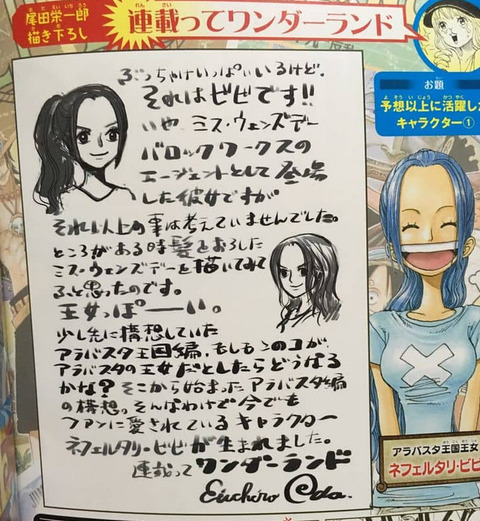 尾田栄一郎
描き下ろし
連載ってワンダーランド
お題
予想以上に活躍した
キャラクター①
ぶっちゃけいっぱいいるけど、
それはビビです!!
いや ミス・ウェンズデー
バロックワークスの
エージェントとして登場
した彼女ですが。
それ以上の事は考えていませんでした。
ところがある時髪をおろした
ミス・ウェンズデーを描いてみて
ふと思ったのです。
王女っぽーーい。
少し先に構想していた
アラバスタ王国編、もしもこのコが、
アラバスタの王女だとしたらどうなる
かな？そこから始まったアラバスタ編
の構想。そんなわけで今でも
ファンに愛されているキャラクター
ネフェルタリ・ビビが生まれました。
連載ってワンダーランド
Eiichiro Oda.
アラバスタ王国王女
ネフェルタリ・ビビ